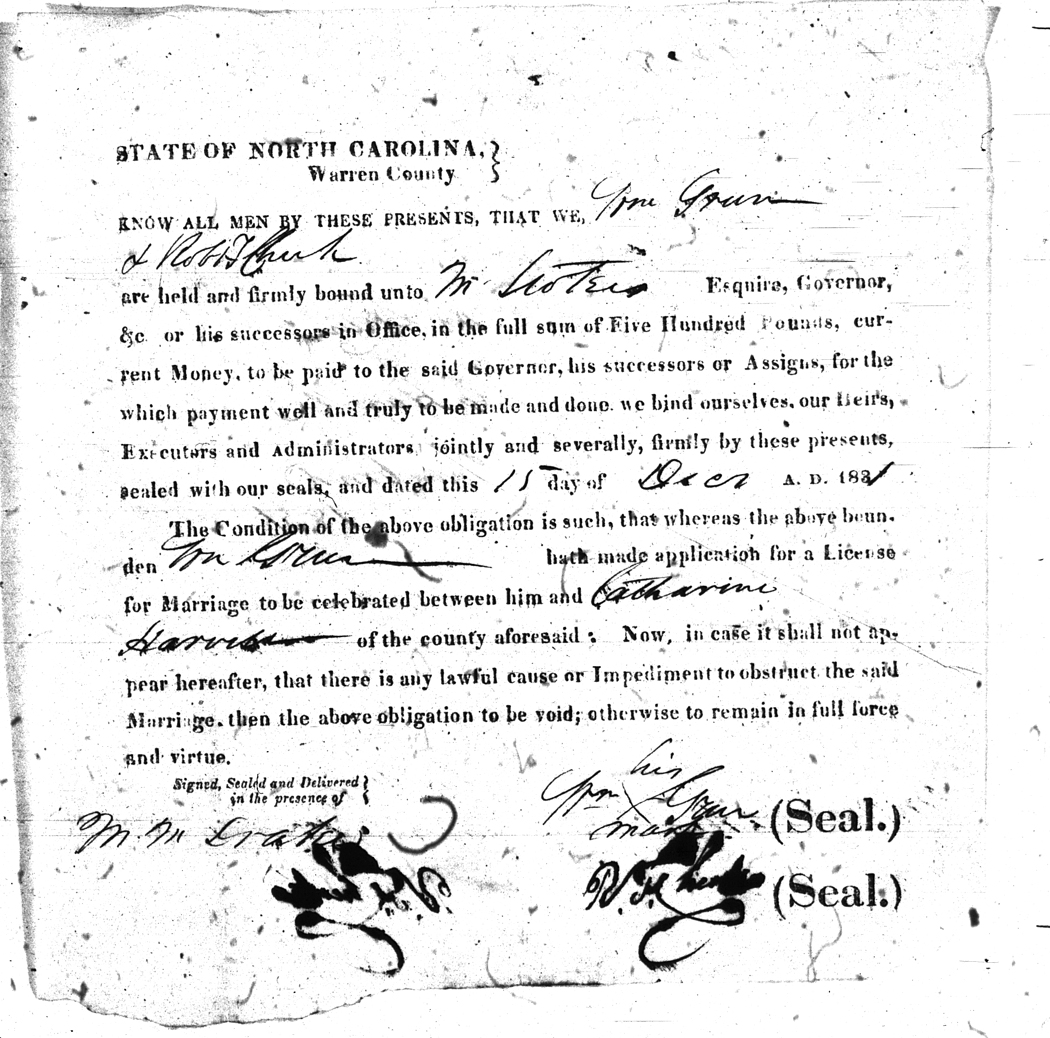 STATE OF NORTH CAROLINA,
Warren County
KNOW ALL MEN BY THESE PRESENTS, THAT WE, Wm Green
& Robt T Cheek
are held and firmly bound unto M Stokes Esquire, Governor,
&c or his successors in Office, in the full sum of Five Hundred Pounds, cur-
rent Money, to be paid to the said Governor, his successors or Assigns, for the
which payment well and truly to be made and done. we bind ourselves, our Heirs,
Executors and Administrators jointly and severally, firmly by these presents,
sealed with our seals, and dated this 15 day of Decr A. D. 1831
The Condition of the above obligation is such, that whereas the above boun-
den Wm Green hath made application for a License
for Marriage to be celebrated between him and Catharine
of the county aforesaid: Now, in case it shall not ap-
pear hereafter, that there is any lawful cause or Impediment to obstruct the said
Marriage, then the above obligation to be void; otherwise to remain in full force
and virtue.
Signed, Sealed and Delivered
in the presence of
his
Wm X Green (Seal.)
mark
M M Drake
R. T. Cheek (Seal.)